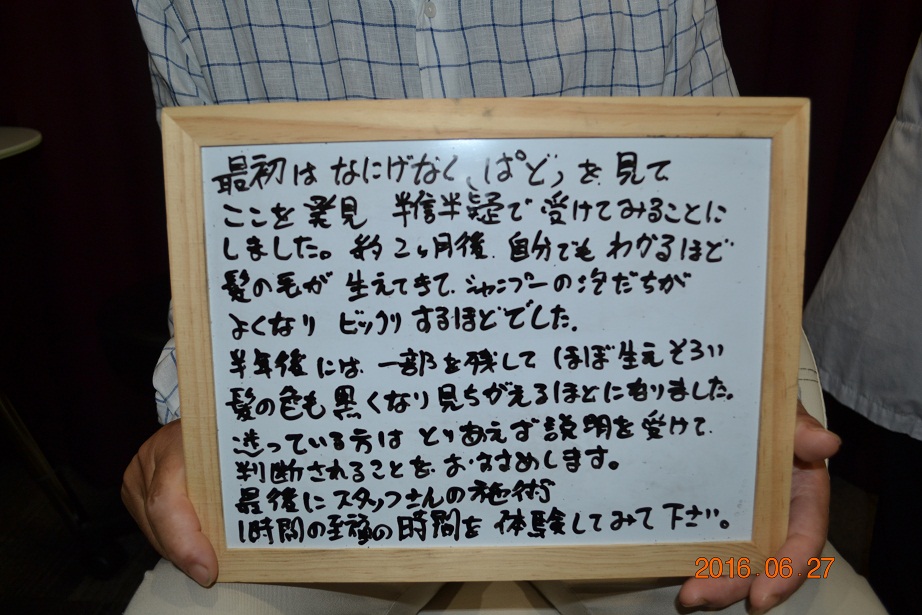 最初は なにげなく、ぱど、を、見て
ここを発見 半信半疑で受けてみることに
しました。約2ヶ月後、自分でもわかるほど
髪の毛が 生えてきて、シャンプーの泡だちが
よくなり ビックリするほどでした。
半年後には、一部を残して ほぼ生えそろい
髪の色も黒くなり見ちがえるほとになりました。
迷っている方は とりあえず説明を受けて、
判断されることを、おすすめします。
最後にスタッフさんの施術
1時間の至福の時間を 体験してみて下さい。
2016.06.27